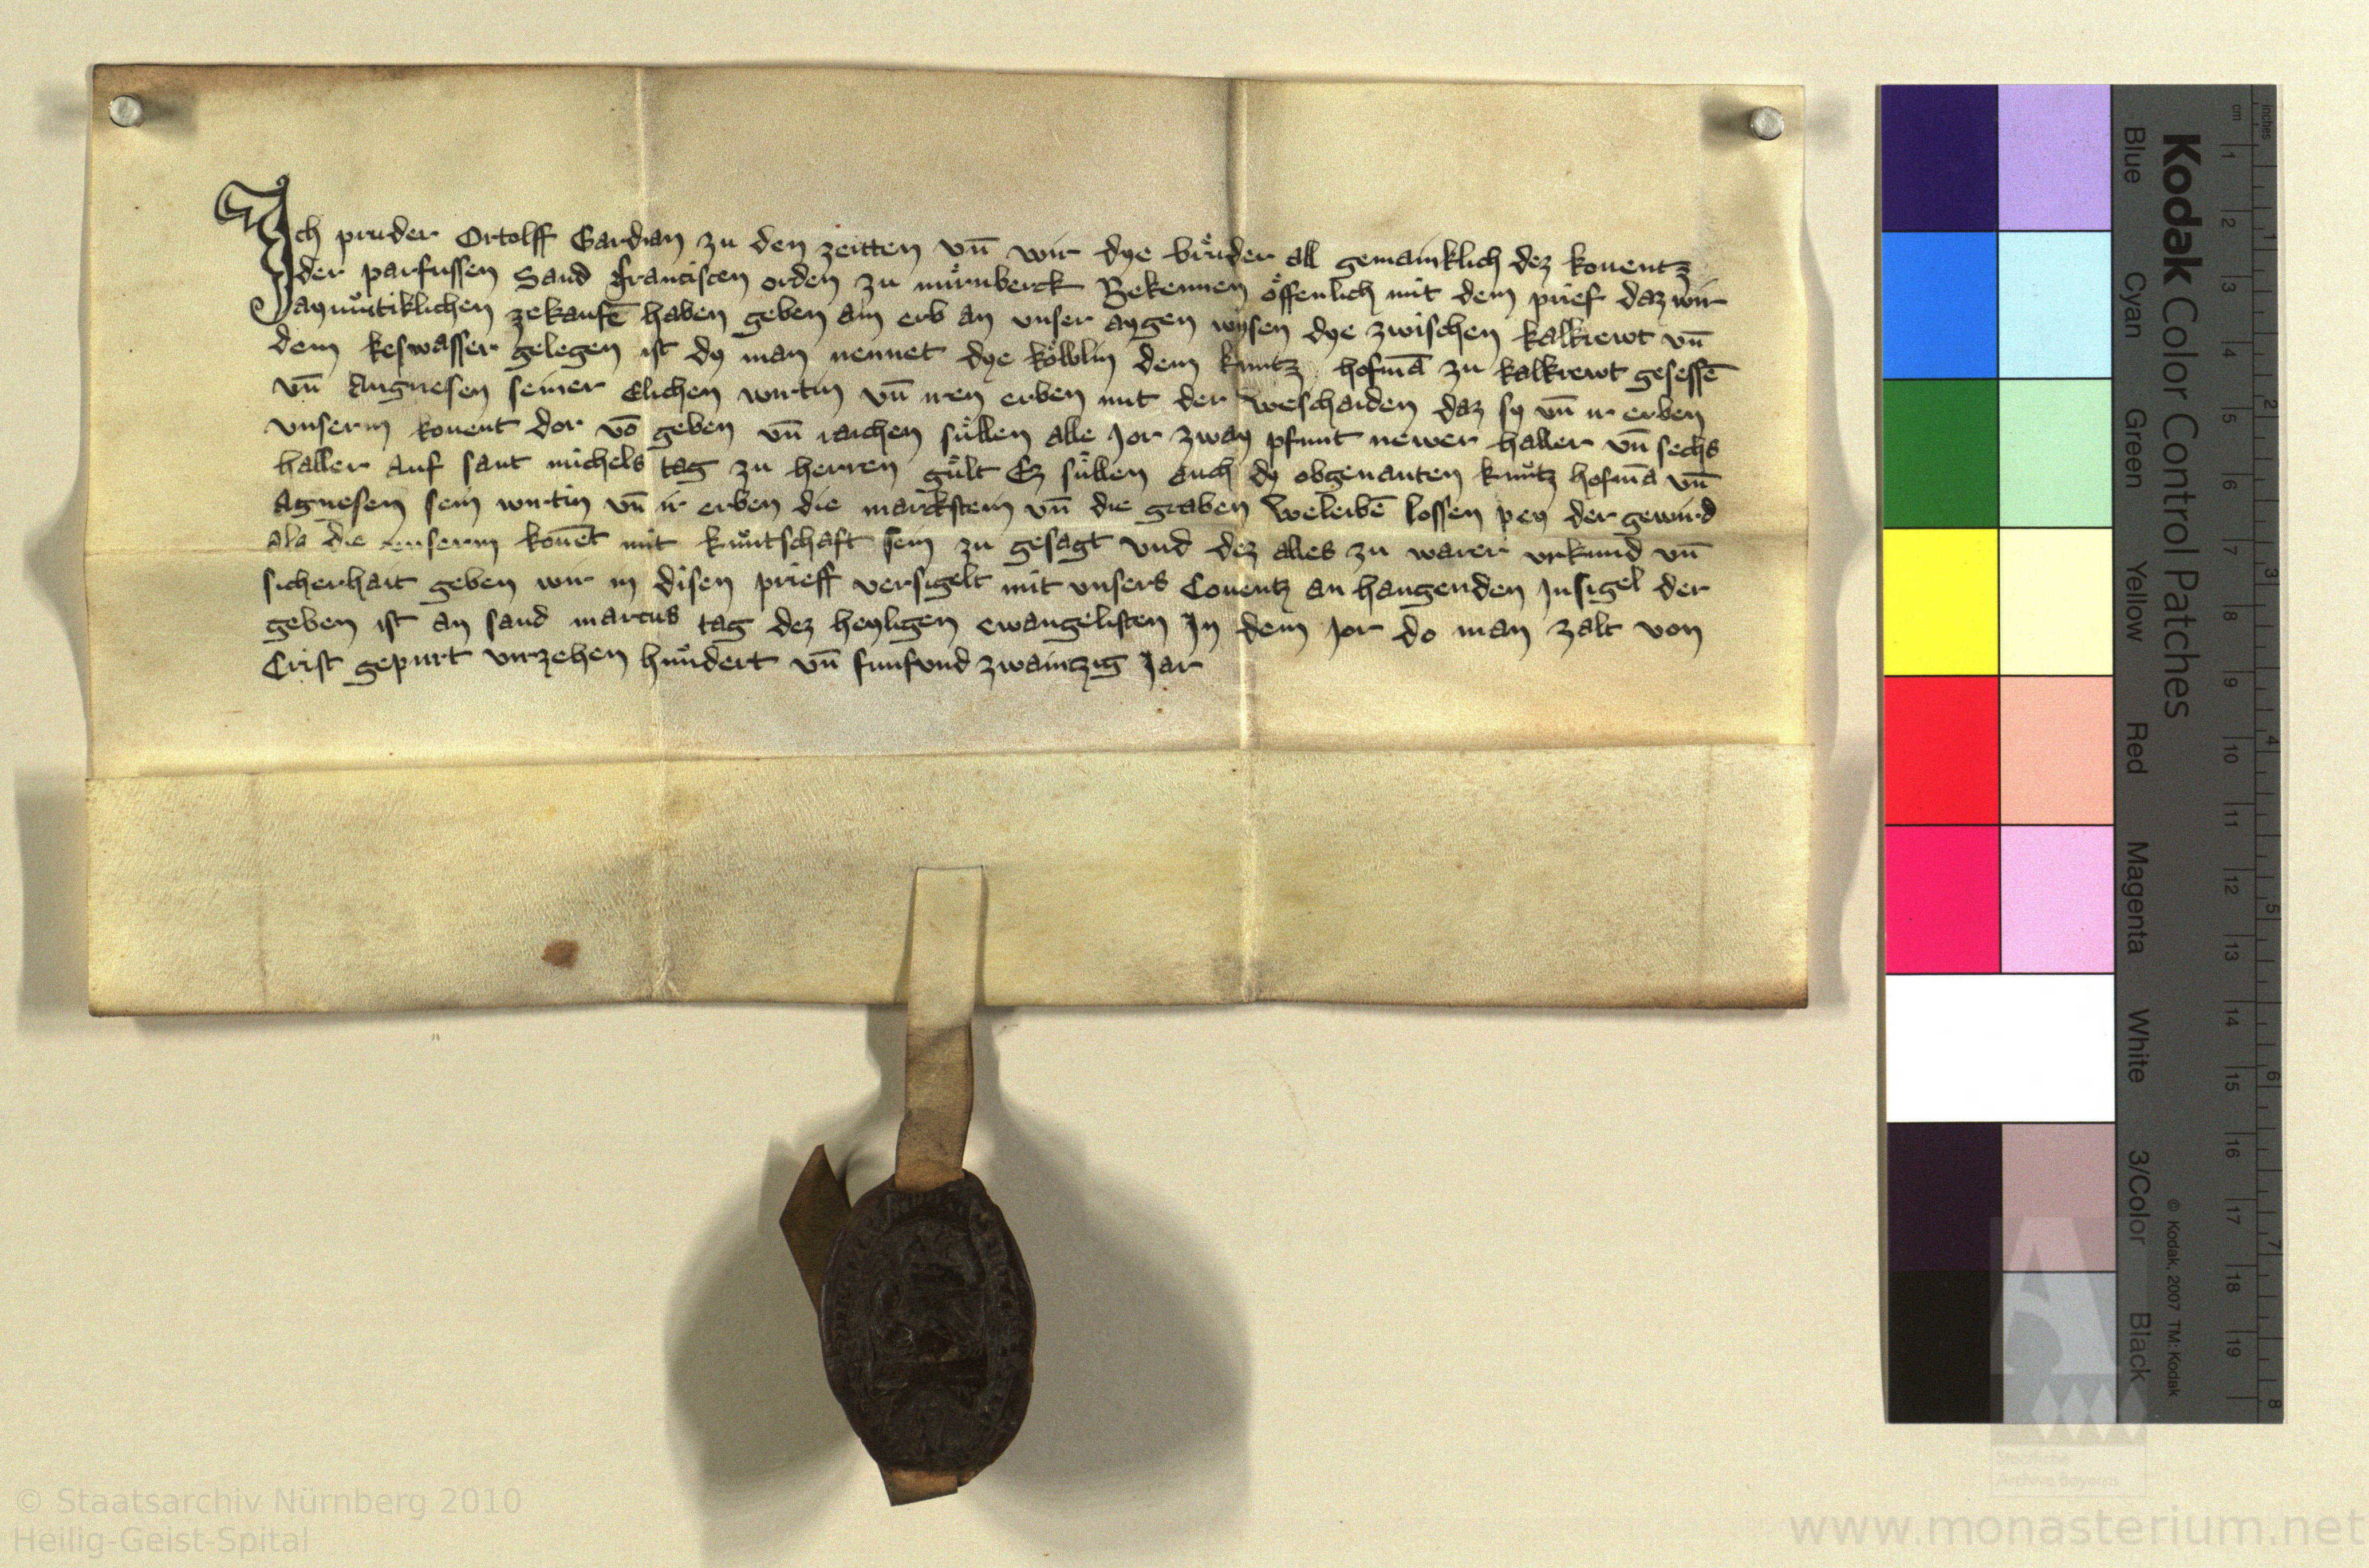 Ich pruder Ortolff Gardian zu den zeitten vn̄ wir dye brůder all gemainklich dez konentz
der parfussen Sand Franciscen orden zu nůrnberck Bekennen őffenlich mit dem prief daz wir
aynmůtiklichen zekaufē haben geben ain erb an vnser aygen wysen dye zwischen kalkrewt vn̄
dem keswasser gelegen ist dy man nennet dye kőlblin dem kuntz hofmā zu kalkrewt gesessē
vn̄ Angnesen seiner Elichen wirtin vn̄ iren erben mit der weschaiden daz sy vn̄ ir erben
vnserm konent dor vō geben vn̄ raichen sűllen alle Jor zway pfunt newer haller vn̄ sechs
haller Auf sant michels tag zu herren gűlt Ez sűllen auch dy obgenanten kuntz hofmā vn̄
Agnesen sein wirtin vn̄ ir erben die marckstein vn̄ die graben weleibē lossen pey der gewird
als die vnserm konēt mit kůntschaft sein zu gesagt vnd dez alles zu warer vrkund vn̄
sicherhait geben wir in disen prieff versigelt mit vnsers Conentz an hangenden Jnsigel der
geben ist an sand marcus tag dez heyligen ewangelisten Jn dem Jor do man zalt von
Crist gepurt virzehen hundert vn̄ funfvnd zwaintzig Jar
Kodak Color Control Patches
Blue Cyan Green Yellow Red Magenta White 3/Color Black
© Kodak, 2007 TM: Kodak
cm 1 2 3 4 5 6 7 8 9 10 11 12 13 14 15 16 17 18 19
inches 1 2 3 4 5 6 7 8
Staatliche
Archive Bayerns
© Staatsarchiv Nürnberg 2010
Heilig-Geist-Spital
www.monasterium.net